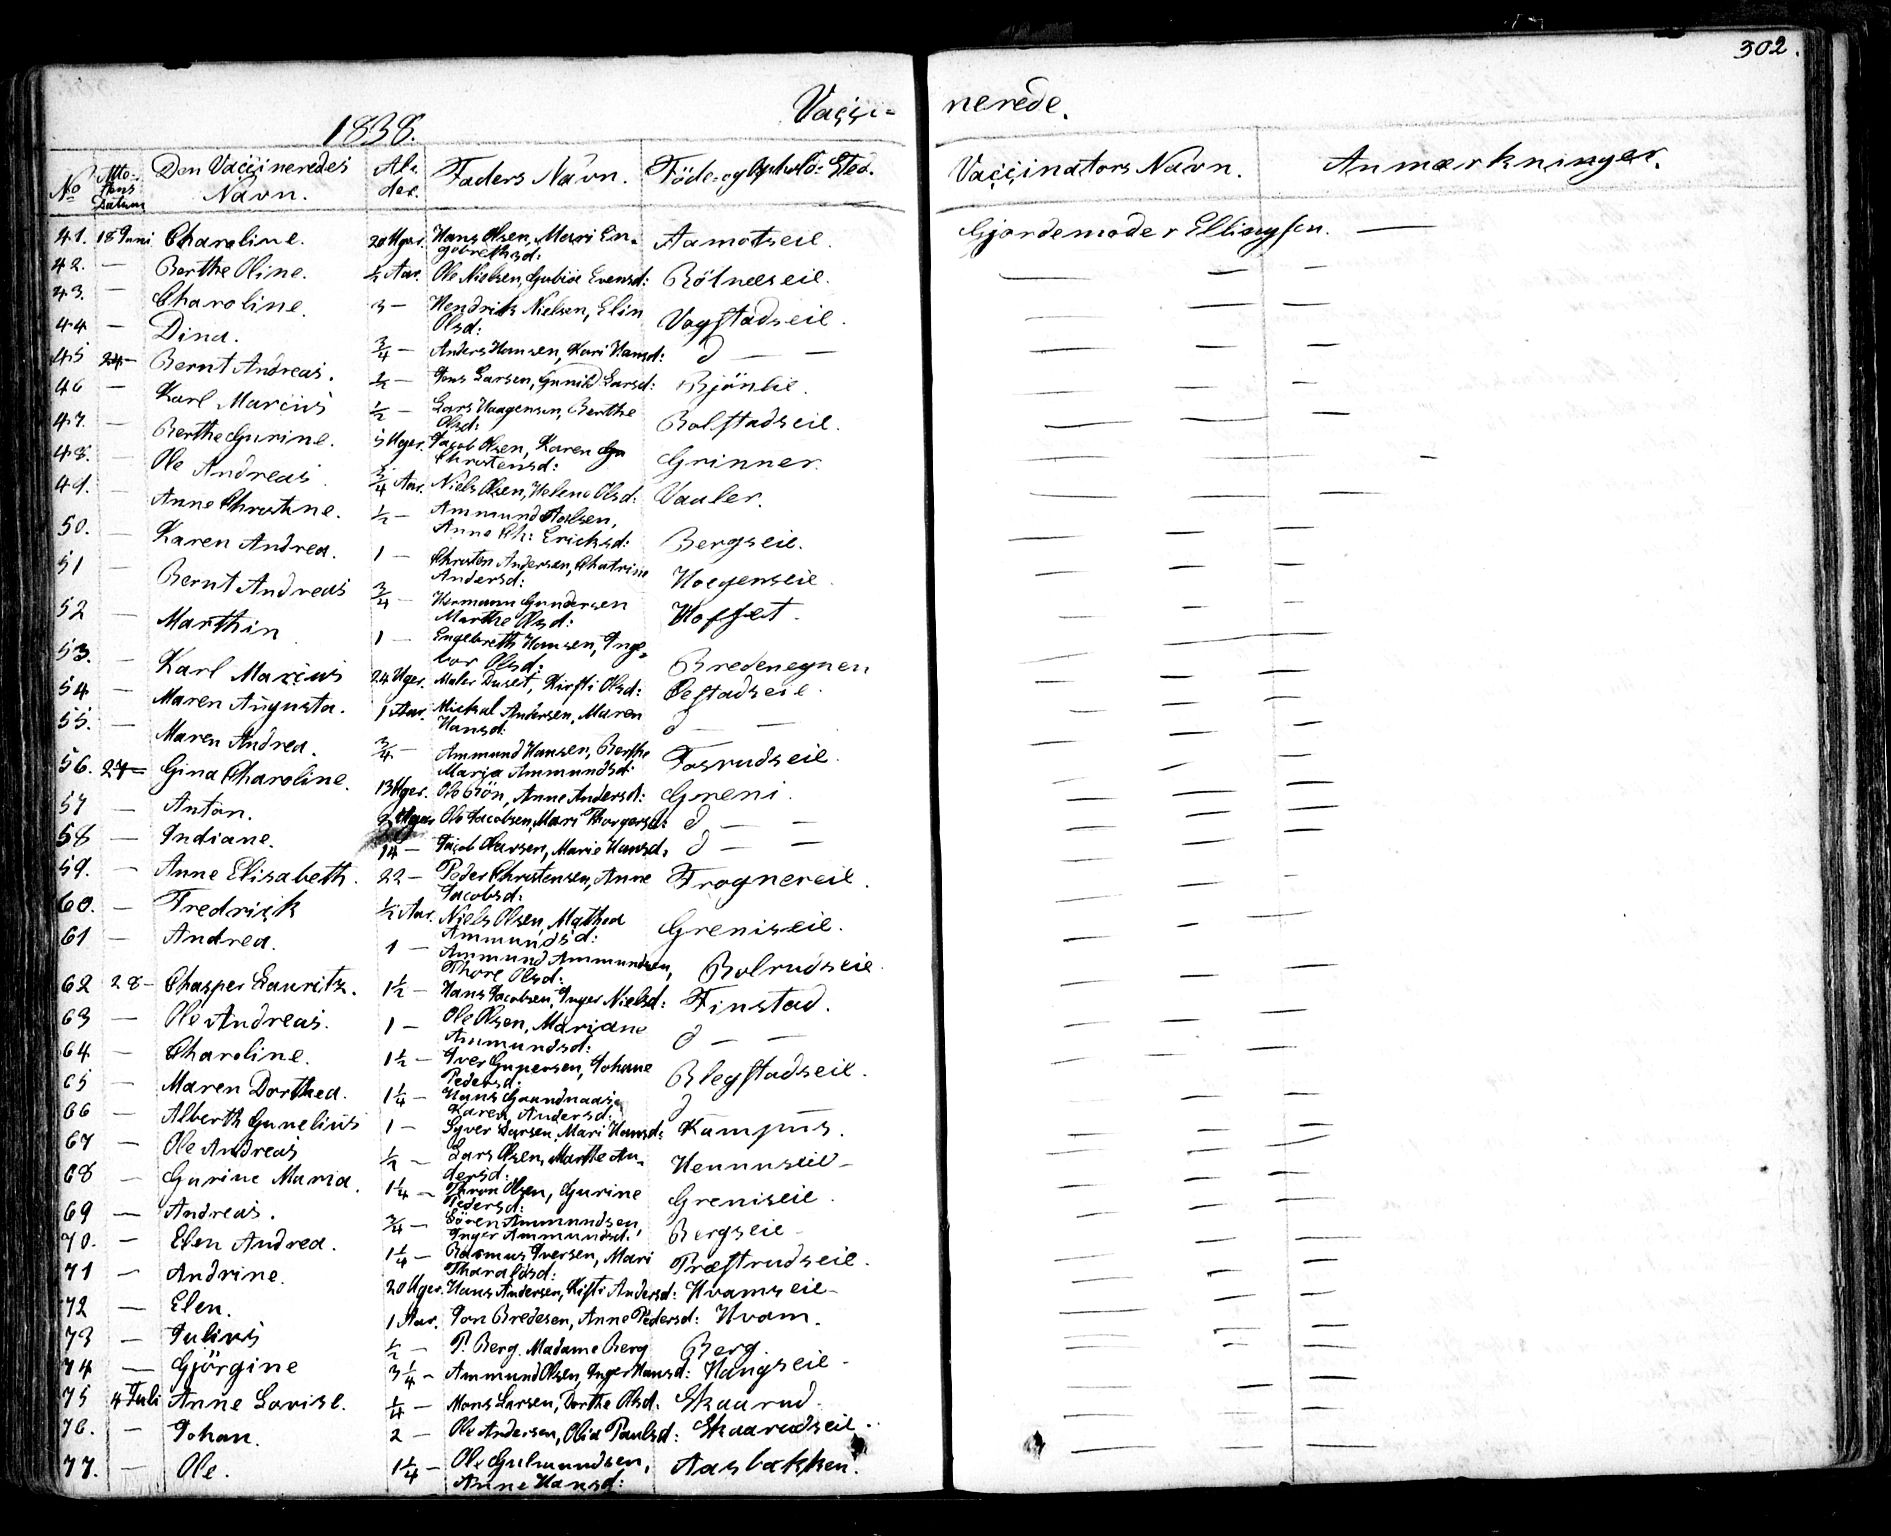 302.
Vacci- nerede.
1838.
No Attestens Datum Den Vaccineredes Navn. Alder. Faders Navn. Föde- og Opholds-Sted. Vaccinators Navn. Anmærkninger.
41. 18 Juni Charoline. 20 Uger. Hans Olsen, Mari En- Aamotseie. Gjordemoder Ellingsen. —
gebrethsd:
42. — Berthe Oline. ½ Aar. Ole Nielsen, Evensd: Rötneseie. — — —
43. — Charoline. 3 — Hendrik Nielsen, Elin Vogstadseie. — — —
Olsd:
44 — Dina. ¾ — Anders Hansen, Kari Hansd: d — — — — —
45 24 — Bernt Andreas. ½ — Jens Larsen, Gunild Larsd: Bjönlie. — — —
46 — Karl Marius ½ — Lars Haagensen, Berthe Bolstadseie. — — —
Olsd:
47. — Berthe Gurine. 5 Uger. Jacob Olsen, Karen Grinner. — — —
Christensd:
48. — Ole Andreas. ¾ Aar. Niels Olsen, Helene Olsd: Vaaler. — — —
49. — Anne Christine. ½ — Ammund Aslsen, Bergseie. — — —
Anne Ch: Ericksd:
50. — Karen Andrea. 1 — Christen Andersen, Chatrine Hoegenseie. — — —
Andersd:
51 — Bernt Andreas ¾ — Hermann Gundersen Hoffet. — — —
Marthe Olsd:
52 — Marthin 1 — Engebreth Hansen, Inge- Bredenegnen — — —
bor Olsd:
53. — Karl Marius 24 Uger. Maler Duset, Kirsti Olsd: Oestadseie. — — —
54 — Maren Augusta. 1 Aar. Mickal Andersen, Maren d — — — — —
Hansd:
55. — Maren Andrea. ¾ — Ammund Hansen, Berthe Fosrudseie. — — —
Marja Ammundsd:
56. 27 — Gina Charoline. 13 Uger. Ole Grön, Anne Andersd: Greni. — — —
57 — Anton. 9 Uger Ole Jacobsen, Mari Thorgersd: d — — — — —
58 — Indiane. 14 — Jacob Olavsen, Marie Hansd: d — — — — —
59. — Anne Elisabeth. 22 — Peder Christensen, Anne Frognereie. — — —
Jacobsd:
60. — Fredrick ½ Aar. Niels Olsen, Mathea Greniseie. — — —
Ammundsd:
61 — Andrea. 1 — Ammund Ammundsen, Bolrudseie. — — —
Thore Olsd:
62 28 — Chasper Lauritz. 1½ — Hans Jacobsen, Inger Nielsd: Finstad. — — —
63 — Ole Andreas. 1 — Ole Olsen, Mariane d — — — — —
Ammundsd:
64 — Charoline. 1½ — Iver Gunersen, Johane Blegstadseie. — — —
Pedersd:
65 — Maren Dorthea. 1¼ — Hans d — — — — —
Karen Andersd:
66 — Alberth Gunelius 1 — Syver Larsen, Mari Hansd: Kampus. — — —
67 — Ole Andreas ½ — Lars Olsen, Marthe An- — — —
dersd:
68 — Gurine Maria. 1¼ — Thron Olsen, Gurine Greniseie. — — —
Pedersd:
69 — Andreas. ¾ — Sören Ammundsen, Bergseie — — —
Inger Ammundsd:
70. — Elen Andrea. 1¼ — Rasmus Iversen, Mari Præstrudseie. — — —
Tharaldsd:
71 — Andrine. 20 Uger. Hans Andersen, Kisti Andersd: Hvamseie — — —
72 — Elen. 1 Aar. Jon Bredesen, Anne Pedersd: Hvam. — — —
73 — Julius ½ — P. Berg. Madame Berg Berg. — — —
74 — Gjörgine 3¼ — Ammund Olsen, Inger Hansd: Haugseie — — —
75 4 Juli Anne Lovise. ¼ — Mons Larsen, Dorthe Olsd: Skaarud. — — —
76. — Johan. 2 — Ole Andersen, Olia Paulsd: Skaarudseie. — — —
77. — Ole. 1¼ — Ole Gulmundsen, Aasbakken. — — —
Anne Hansd: